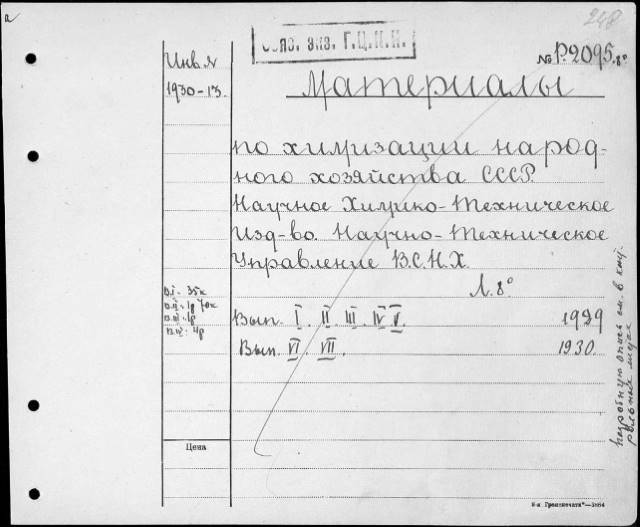 248
Обяз. экз. Г.Ц.К.П.
Инв.№
1930-13.
№ Р.2095.8°
Материалы
по химизации народ-
ного хозяйства СССР.
Научное Химико-Техническое
Изд-во. Научно-Техническое
Управление В.С.Н.Х.
Л. 8°
в.I - 35к
в.II - 1р 70к
в.III - 1р
в.IV - 4р
Вып. I. II. III. IV V. 1929
Вып. VI. VII. 1930.
Подробную опись см. в кат.
Цена